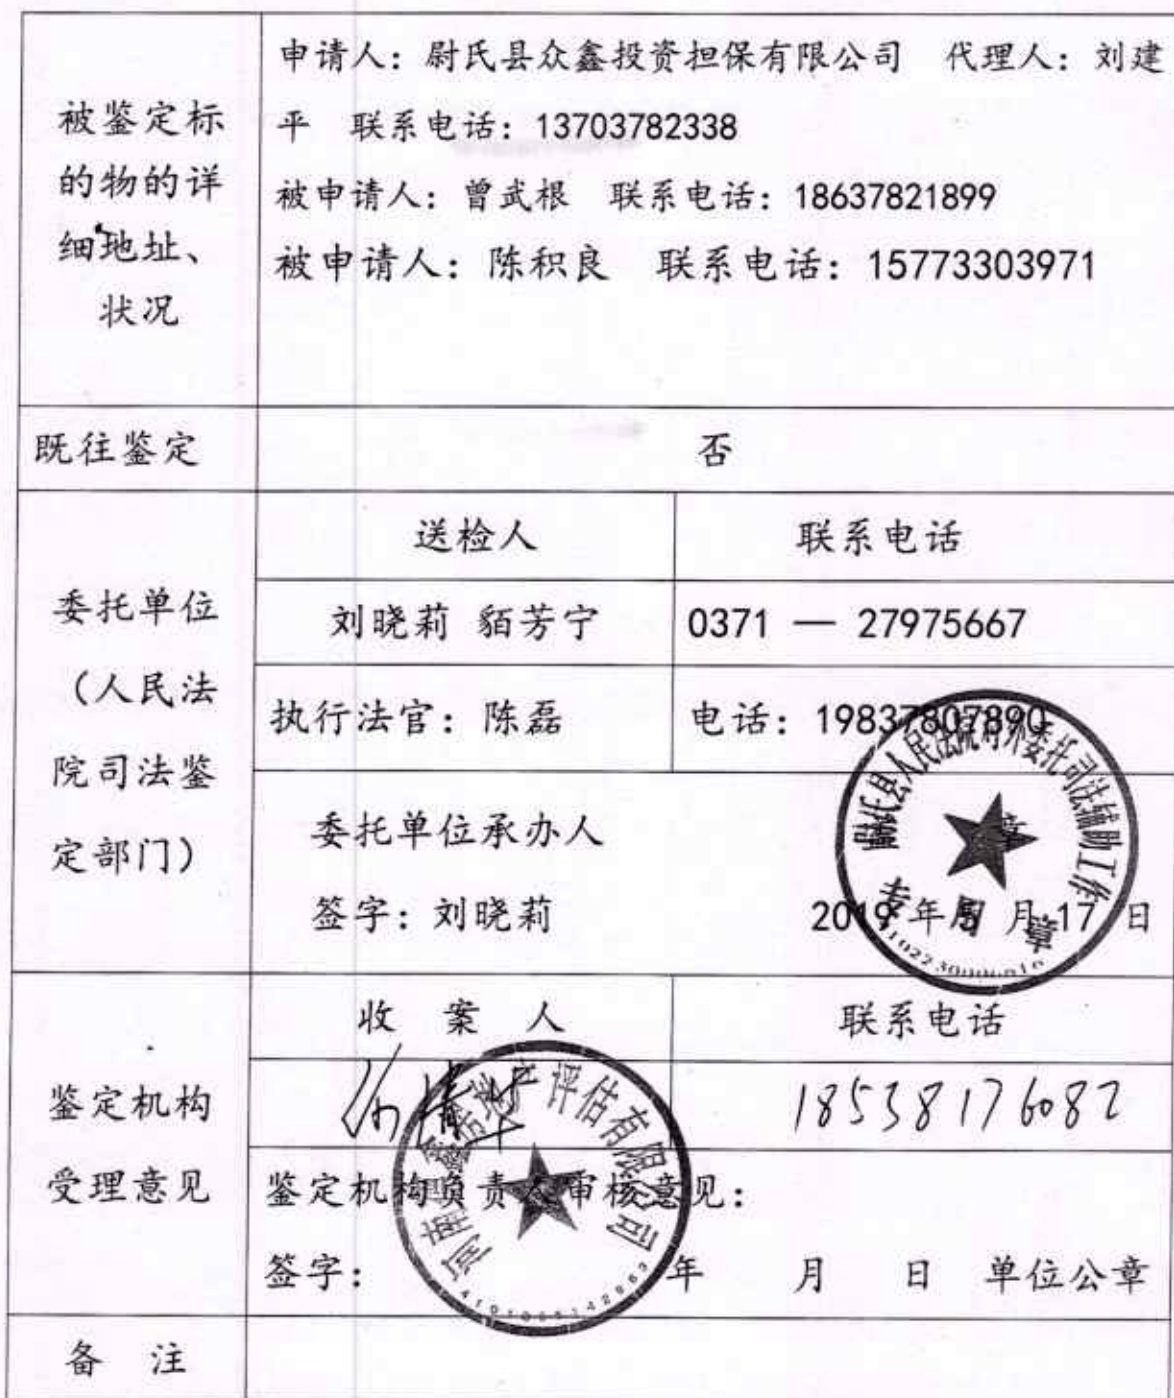 被鉴定标
的物的详
细地址、
状况
申请人：尉氏县众鑫投资担保有限公司　代理人：刘建
平　联系电话：13703782338
被申请人：曾武根　联系电话：18637821899
被申请人：陈积良　联系电话：15773303971
既往鉴定
否
委托单位
（人民法
院司法鉴
定部门）
送检人
联系电话
刘晓莉 貊芳宁
0371 — 27975667
执行法官：陈磊
电话：19837807890
委托单位承办人
章
签字：刘晓莉
2019 年 月 17 日
尉氏县人民法院对外委托司法辅助工作
专用章
鉴定机构
受理意见
收 案 人
联系电话
18538176082
鉴定机构负责人审核意见：
签字：　年　月　日　单位公章
河南 鑫房地产评估有限公司
备 注